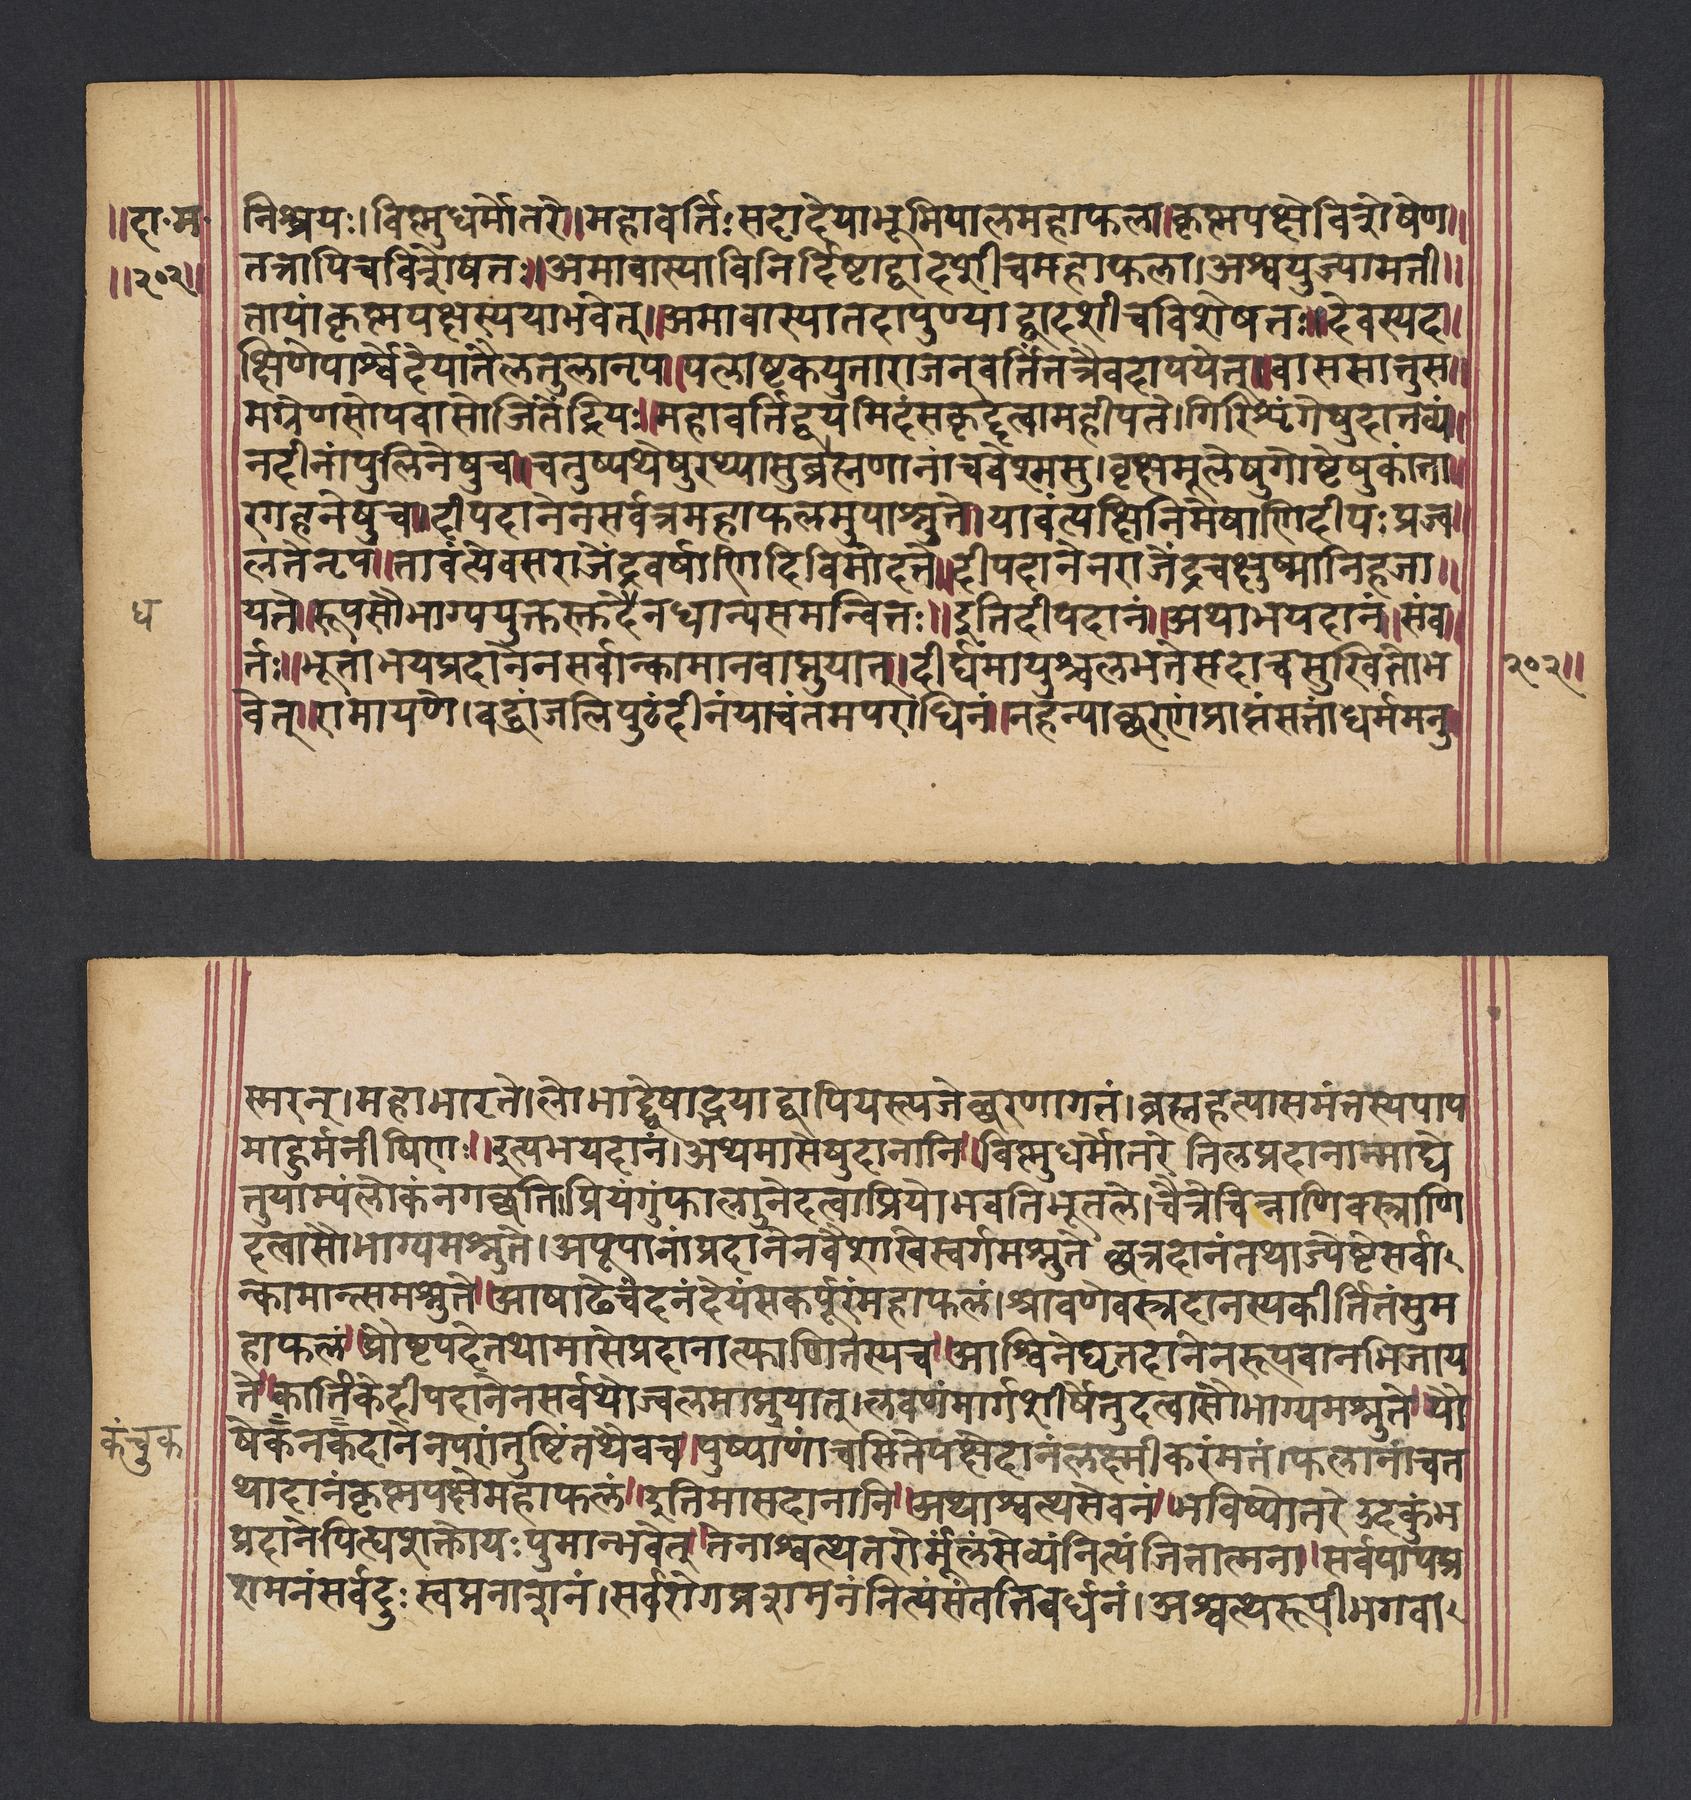 ॥दा॰म॰
॥२०२॥
निश्चयः। विष्णुधर्मोतरे॥महावर्तिः सदादेयाभूमिपालमहाफला॥कृष्णपक्षेविशेषेण॥
तत्रापिचविशेषतः॥अमावास्याविनिर्दिष्टाद्वादशीचमहाफला।अश्वयुज्यामती॥
तायांकृष्णपक्षस्ययाभवेत्॥अमावास्यातदापुण्याद्वादशीचविशेषतः॥देवस्यद॥
क्षिणेपार्श्वेदेयातैलतुलानृप॥पलाष्टकयुताराजन्वर्तितत्रैवदापयेत्॥वाससातुस॥
मग्रेणसोपवासोजितेंद्रियः॥महावर्तिद्वयमिदंसकृद्दत्वामहीपते।गिरिशृंगेषुदातव्यं॥
नदीनांपुलिनेषुच॥चतुष्पथेषुरथ्यासुब्राह्मणानांचवेश्मसु।वृक्षमूलेषुगोष्टेषुकांता॥
रगहनेषुच॥दीपदानेनसर्वत्रमहाफलमुपाश्नुते।यावंत्यक्षिनिमेषाणिदीपः प्रज्व॥
लतेनृप॥तावंत्येवसराजेंद्रवर्षाणिदिविमोदते॥दीपदानेनराजेंद्रचक्षुष्मानिहजा॥
ध
यते॥रूपसौभाग्ययुक्तस्क्तर्धनधान्यसमन्वितः॥इतिदीपदानं॥अथाभयदानं॥संव॥
र्तः॥भूताभयप्रदानेनसर्वान्कामानवाप्नुयात्॥दीर्घमायुश्चलभतेसदाचसुखितोभ
२०२॥
वेत्॥रामायणे।बद्धांजलिपुटंदीनंयाचंतमपराधिनं॥नहन्याच्छरणंप्राप्तंसतांधर्ममनु
स्मरन्।महाभारते।लोभाद्द्वेषाद्भयाद्वापियस्त्यजेच्छरणागतं।ब्रह्महत्यासमंतस्यपाप
माहुर्मनीषिणः॥इत्यभयदानं।अथ्यमासेषुदानानि॥विष्णुधर्मोतरे तिलप्रदानान्माघे
तुयाम्यंलोकंनगच्छति।प्रियंगुंफाल्गुनेदत्वाप्रियोभवतिभूतले।चैत्रेचित्राणिवस्त्राणि
दत्वासौभाग्यमश्नुते।अपूपानांप्रदानेनवैशाखेस्वर्गमश्नुते छत्रदानंतथाज्येष्टेसर्वा
न्कामान्त्समश्नुते॥आषाढेचंदनंदेयंसकर्पूरंमहाफलं।श्रावणेवस्त्रदानस्यकीर्तितंसुम
हाफलं॥प्रौष्टपदेतथामासेप्रदानात्फाणितस्यच॥आश्विनेघृतदानेनरूपवानभिजाय
ते॥कार्तिकेदीपदानेनसर्वथोज्वलमाप्नुयात्।लवणंमार्गशीर्षेतुदत्वासौभाग्यमश्नुते॥पौ
कंचुक
षेकनकदानेनपरांतुष्टिंतथैवच॥पुष्पाणांचसितेपक्षेदानंलक्ष्मीकरंमतं।फलानांचत
थादानंकृष्णपक्षेमहाफलं॥इतिमासदानानि॥अथाश्वत्थसेवनं॥भविष्योतरे उदकुंभ
प्रदानेपित्घशक्तोयः पुमान्भवेत्॥तेनाश्वत्थतरोर्मूलंसेव्यंनित्यंजितात्मना॥सर्वपापप्र
शमनंसर्वदुः स्वप्ननाशनं।सर्वरोगप्रशमनंनित्यंसंततिवर्धनं।अश्वत्थरूपीभगवा